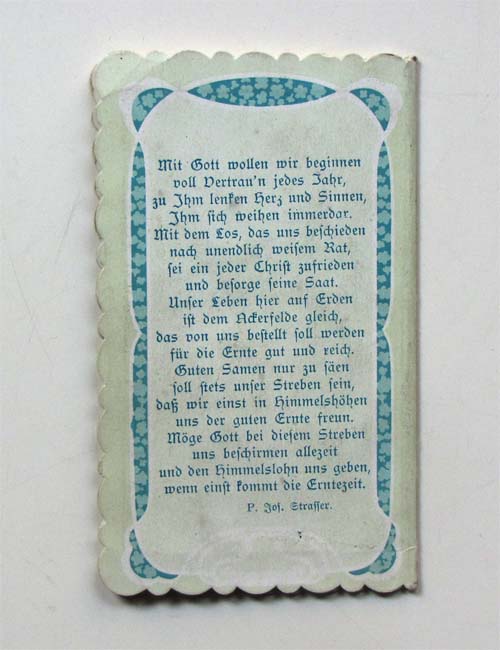 Mit Gott wollen wir beginnen
voll Vertrau'n jedes Jahr,
zu Ihm lenken Herz und Sinnen,
Ihm sich weihen immerdar.
Mit dem Los, das uns beschieden
nach unendlich weisem Rat,
sei ein jeder Christ zufrieden
und besorge seine Saat.
Unser Leben hier auf Erden
ist dem Ackerfelde gleich,
das von uns bestellt soll werden
für die Ernte gut und reich.
Guten Samen nur zu säen
soll stets unser Streben sein,
daß wir einst in Himmelshöhen
uns der guten Ernte freun.
Möge Gott bei diesem Streben
uns beschirmen allezeit
und den Himmelslohn uns geben,
wenn einst kommt die Erntezeit.
P. Jos. Strasser.